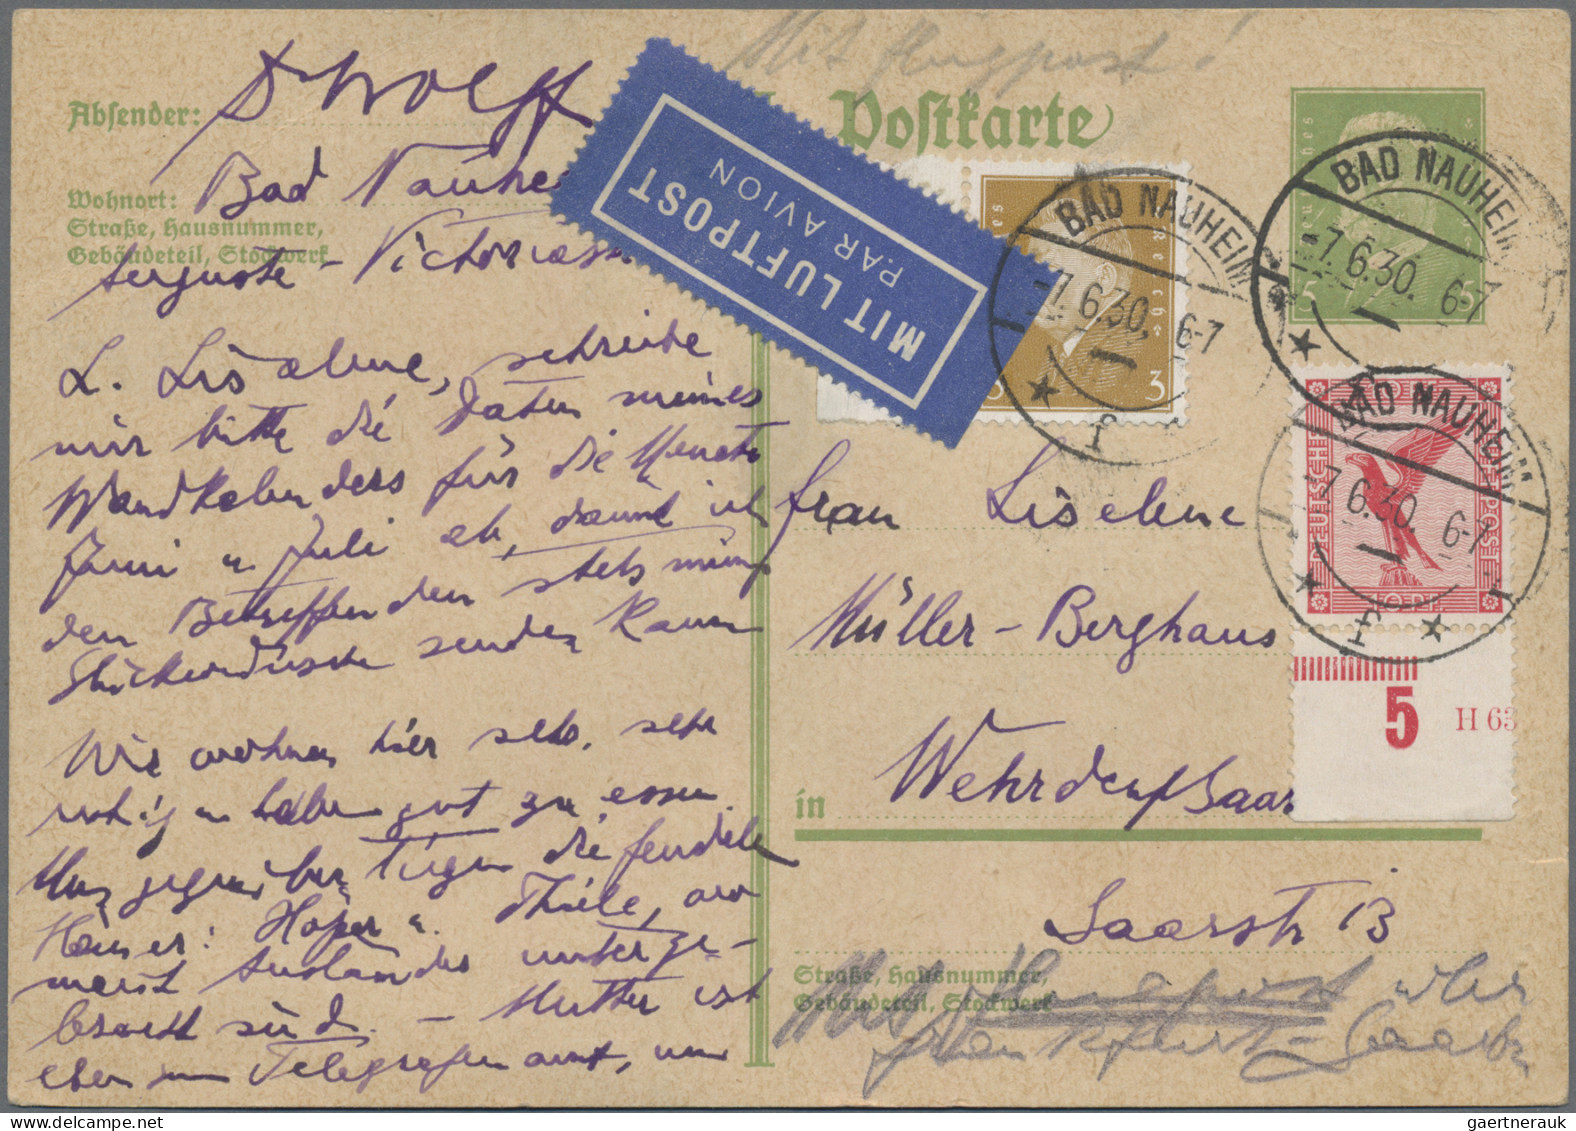 Mit Flugpost!
Absender: Dr Wolff
Postkarte
Bad Nauhe
Wohnort:
Straße, Hausnummer,
Gebäudeteil, Stockwerk
MIT LUFTPOST
PAR AVION
BAD NAUHEIM
-7.6.30. 6-7
3
BAD NAUHEIM
-7.6.30. 6-7
5
BAD NAUHEIM
-7.6.30. 6-7
DEUTSCHE
5
H 63
L. Liselene, schreibe
mir bitte die Daten meines
Wandkalenders für die Monate
Juni u Juli ab, damit ich
den Betreffenden stets meine
senden kann
Wir wohnen hier sehr, sehr
ruhig u haben gut zu essen.
Uns gegenüber liegen die
Häuser: u. Thiele, wo
meist Ausländer unterge-
bracht sind. - Mutter ist
eben zum Telegrafenamt, um
Frau Liselene
Müller-Berghaus
in Wehrden/Saar
Saarstr 13
Straße, Hausnummer,
Gebäudeteil, Stockwerk
Mit Flugpost über
Frankfurt-Saarbr
gaertnerauk